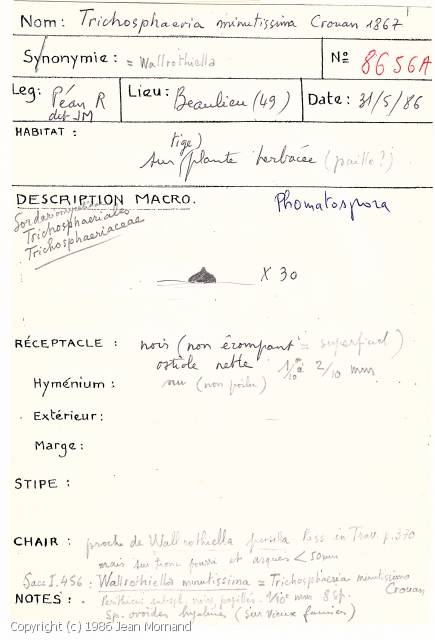 Nom: Trichosphaeria minutissima Crouan 1867
Synonymie: = Wallrothiella
No 8656A
Leg: Péan R
det JM
Lieu: Beaulieu (49)
Date: 31/5/86
HABITAT :
tige)
sur (plante herbacée (paille?)
DESCRIPTION MACRO.
Phomatospora
Sordariomycetes
Trichosphaeriales
Trichosphaeriaceae
X 30
RÉCEPTACLE : noir (non érompant = superficiel)
ostiole nette 1/10 à 2/10 mm
Hyménium : nu (non poilu)
Extérieur:
Marge:
STIPE :
CHAIR : proche de Wallrothiella Pass in Trav p.370
mais sur tronc pourri et asques < 50mm
Sacc I.456 : Wallrothiella minutissima = Trichosphaeria minutissima
Crouan
NOTES : Périthèces subsph. noirs papillés 1/10 mm 8 sp.
sp. ovoïdes hyalines (sur vieux fumier)
Copyright (c) 1986 Jean Mornand